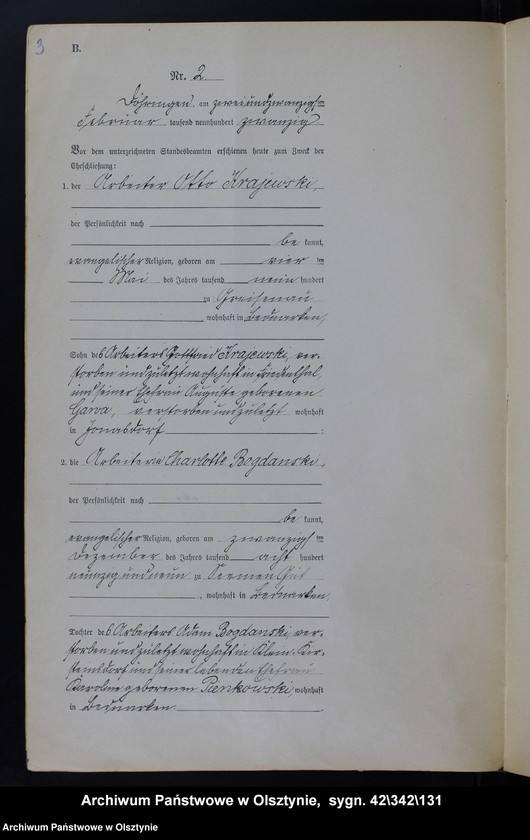 3
B.
Nr. 2.
Döhringen, am zweiundzwanzigsten
Februar tausend neunhundert zwanzig
Vor dem unterzeichneten Standesbeamten erschienen heute zum Zweck der
Eheschließung:
1. der Arbeiter Otto Krajewski,
der Persönlichkeit nach
be kannt,
evangelischer Religion, geboren am vier ten
Mai des Jahres tausend neun hundert
zu Greisenau
, wohnhaft in Bednarken,
Sohn des Arbeiters Gottfried Krajewski, ver-
storben und zuletzt wohnhaft in Lindenthal,
und seiner Ehefrau Auguste geborenen
Garva, verstorben und zuletzt wohnhaft
in Jonasdorf :
2. die Arbeiterin Charlotte Bogdanski,
der Persönlichkeit nach
be kannt,
evangelischer Religion, geboren am zwanzigsten
Dezember des Jahres tausend acht hundert
neunzig und neun zu Seemen Gut
, wohnhaft in Bednarken
Tochter des Arbeiters Adam Bogdanski, ver-
storben und zuletzt wohnhaft in Klein
und seiner lebenden Ehefrau
Karoline geborenen Pienkowski, wohnhaft
in Bednarken
Archiwum Państwowe w Olsztynie, sygn. 42\342\131
Archiwum Państwowe w Olsztynie